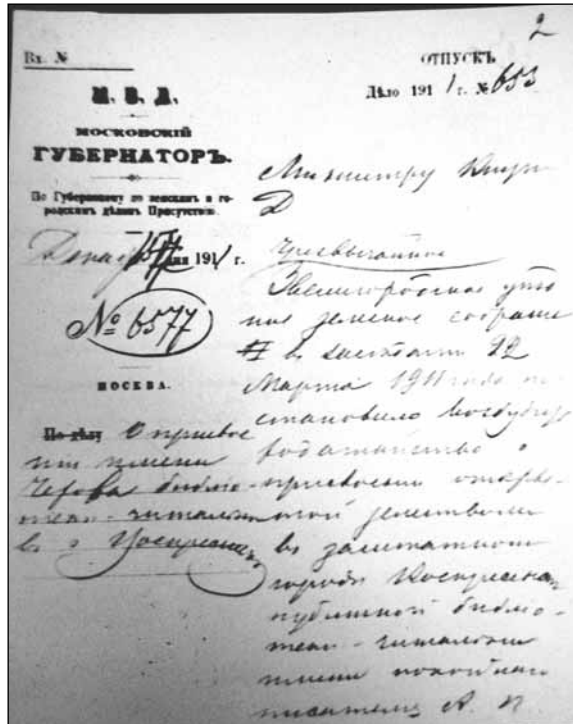 2
Вх. №
ОТПУСКЪ
Дѣло 1911 г. № 653
М. В. Д.
МОСКОВСКІЙ
ГУБЕРНАТОРЪ.
По Губернскому по земскимъ и го-
родскимъ дѣламъ Присутствію.
1911 г.
№ 6577
МОСКВА.
По дѣлу О присвое
нии имени
Чехова библіо-
теки-читальни
въ г. Воскресен
Министру Внутр
Д
Чрезвычайное
Звенигородское уѣзд
ное земское собрание
въ засѣдании 22
Марта 1911 года по
становило возбудить
ходатайство о
присвоении открыто
той земством
въ заштатном
городѣ Воскресенск
публичной библіо-
теки-читальни
имени покойнаго
писателя А. П.